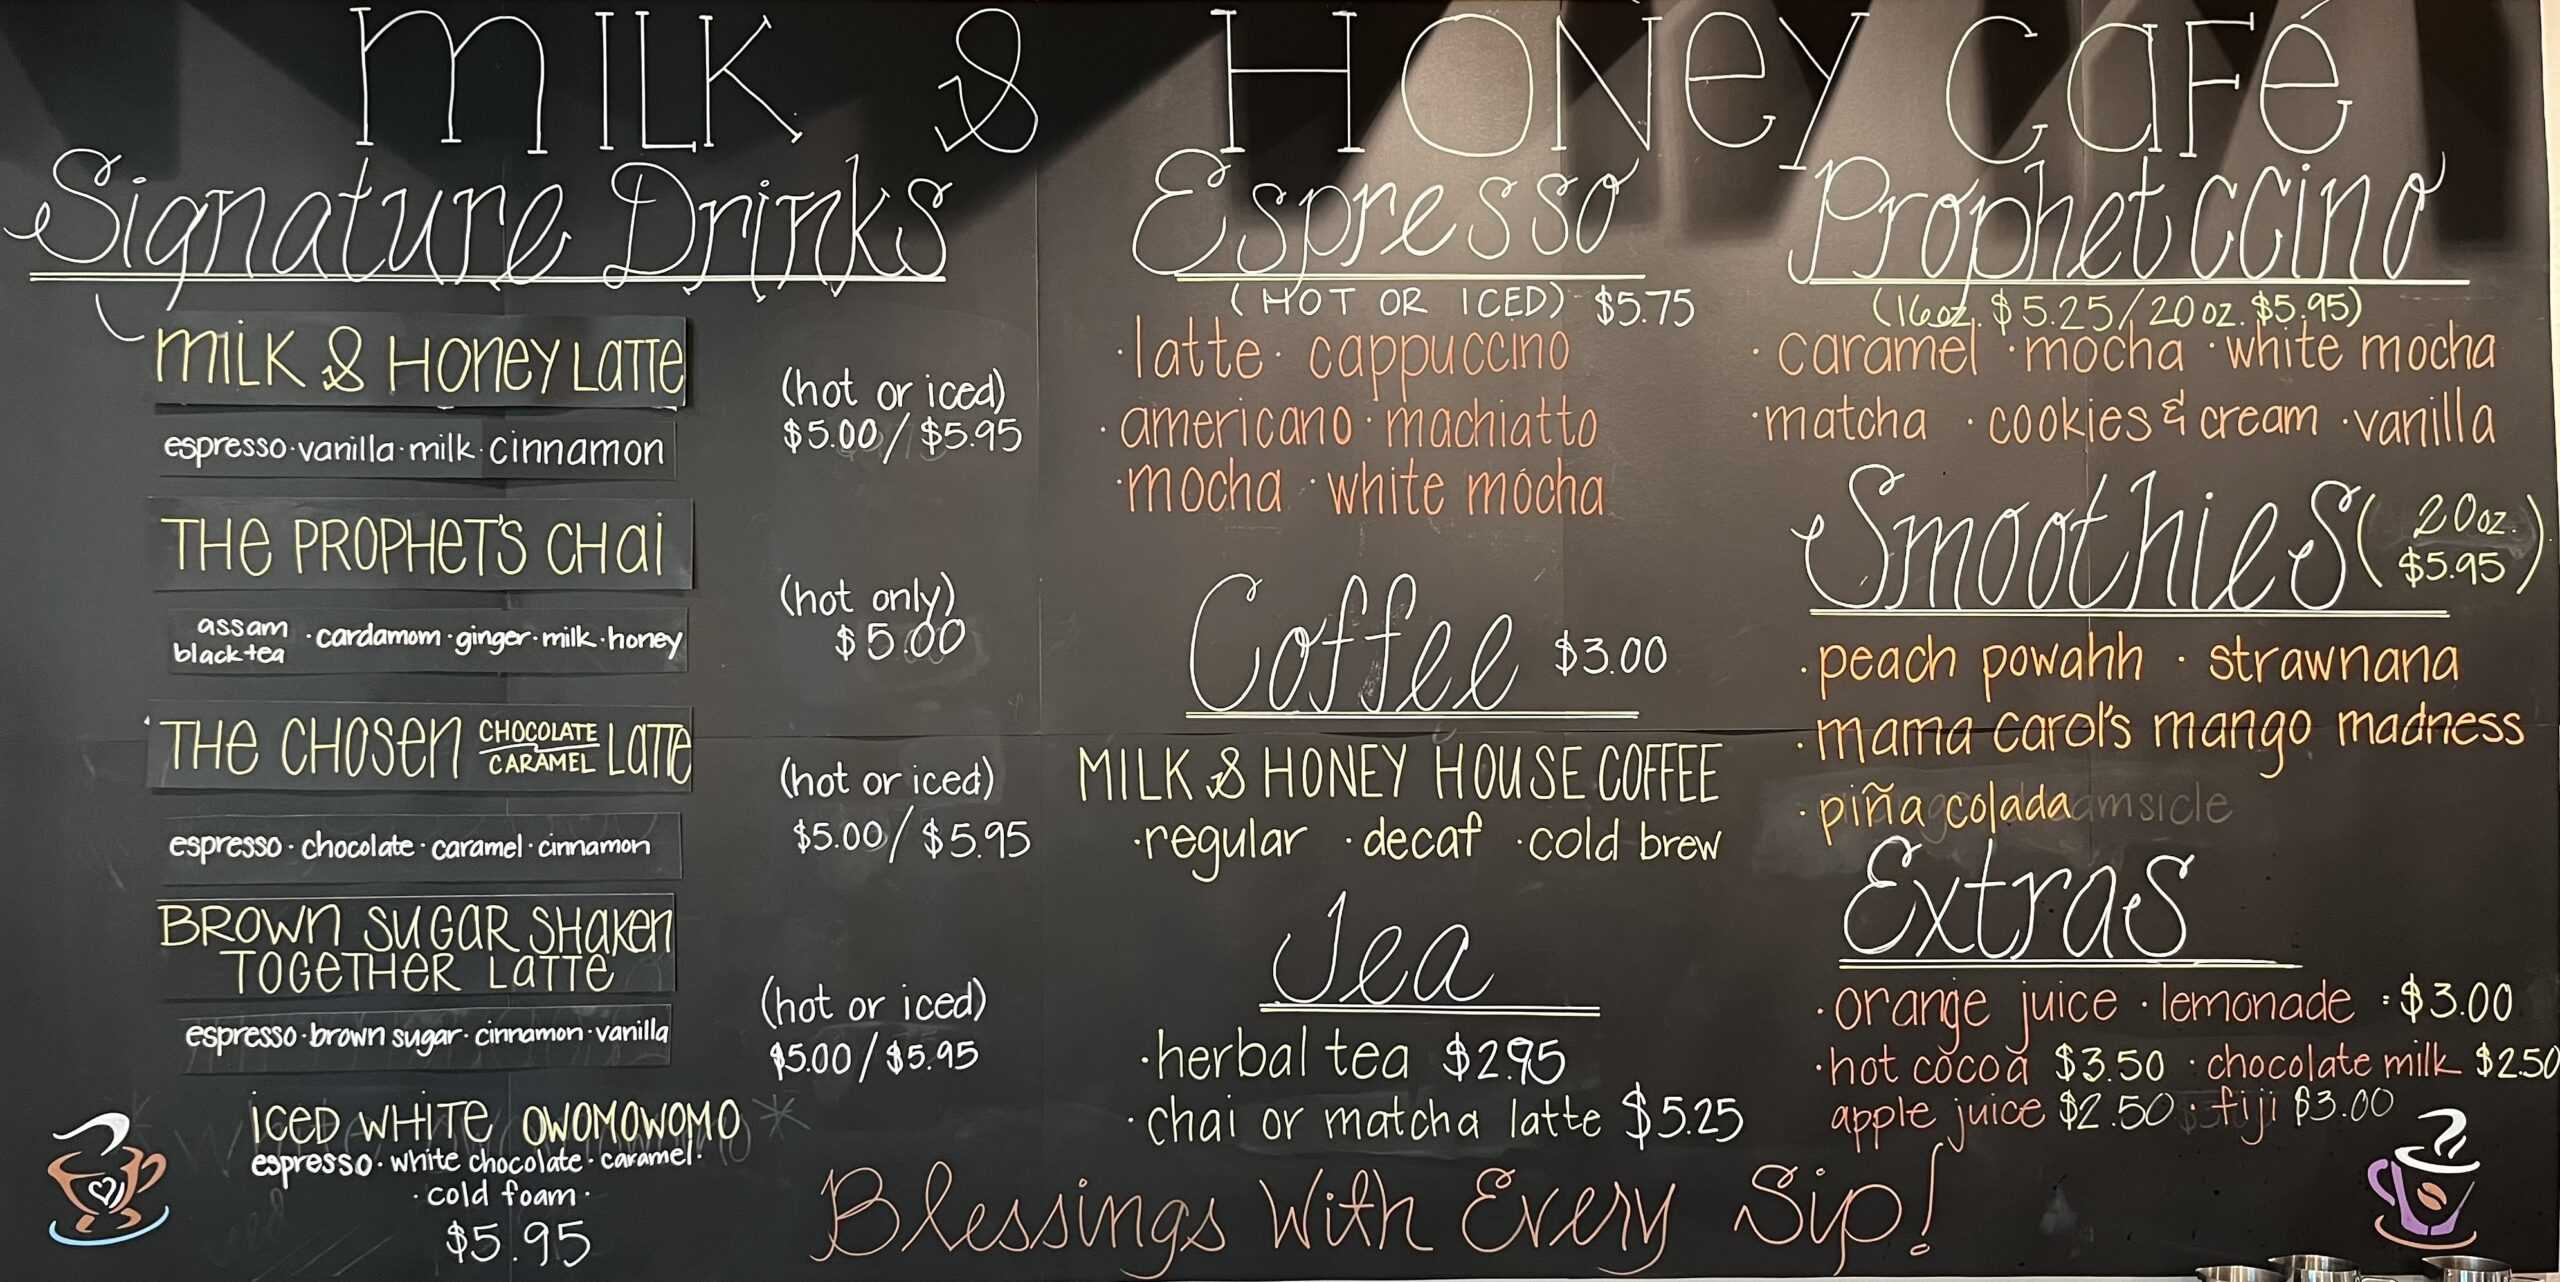 MILK & HONEY CAFÉ
Signature Drinks
MILK & HONEY LATTE
(hot or iced)
$5.00/$5.95
espresso·vanilla·milk·cinnamon
THE PROPHET'S CHAI
(hot only)
$5.00
assam black tea ·cardamom·ginger·milk·honey
THE CHOSEN CHOCOLATE CARAMEL LATTE
(hot or iced)
$5.00/$5.95
espresso·chocolate·caramel·cinnamon
BROWN SUGAR SHAKEN
TOGETHER LATTE
(hot or iced)
$5.00/$5.95
espresso·brown sugar·cinnamon·vanilla
ICED WHITE OWOMOWOMO
espresso·white chocolate·caramel·
·cold foam·
$5.95
Espresso
(HOT OR ICED) $5.75
·latte· cappuccino
·americano·machiatto
·mocha ·white mocha
Coffee $3.00
MILK & HONEY HOUSE COFFEE
·regular ·decaf ·cold brew
Tea
·herbal tea $2.95
·chai or matcha latte $5.25
Prophetccino
(16oz. $5.25/20oz. $5.95)
·caramel ·mocha ·white mocha
·matcha ·cookies & cream ·vanilla
Smoothies (20oz. $5.95)
·peach powahh · strawnana
·mama carol's mango madness
·piña colada
Extras
·orange juice ·lemonade :$3.00
·hot cocoa $3.50 ·chocolate milk $2.50
apple juice $2.50·fiji $3.00
Blessings With Every Sip!